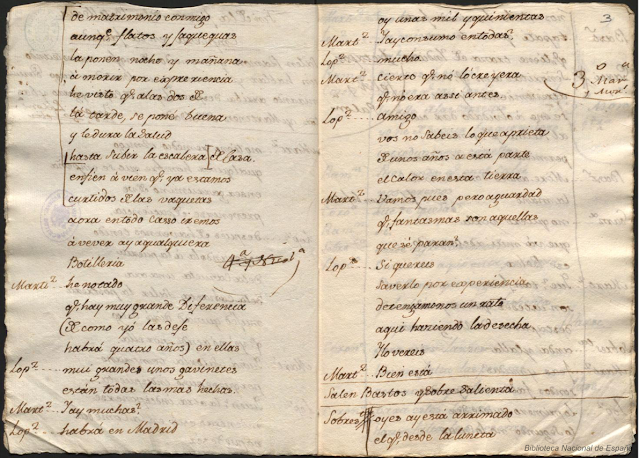 de matrimonio conmigo
aunqe. flatos y jaquequas
la ponen noche y mañana
à morir por experiencia
he visto qe. a las dos de
la tarde, se pone buena
y le dura la salud
hasta subir la escalera de Casa.
enfin â vien qe. ya estamos
curtidos de las vaquetas
aora en todo Casso iremos
à vever a qualquiera
Botilleria
Martz. he notado
qe. hay muy grande Diferencia
(de como yo las dese
habrá quatro años) en ellas
Lopz. muy grande unos gavinetes
están todas las mas hechas.
Martz. Y ay muchas?
Lopz. habrá en Madrid
3
oy unas mil y quinientas
Martz. Y ay consumo en todas?
Lopz. mucho
Martz. cierto qe. nó lo creyera
qe. nó era assi antes.
Lopz. amigo
vos no sabeis lo que aprieta
de unos años a está parte
el Calor en esta tierra
Martz. Vamos pues pero aguardad
qe. fantasmas son aquellas
que se paran?
Lopz. Si quereis
saverlo por experiencia
detengamonos un rato
aqui haziendo la desecha
Y lo vereis
Martz. Bien está
Salen Bastos qe. Sobresalienta
Sobresta. oyes ay está arrimado
el qe. desde la luneta
Biblioteca Nacional de España